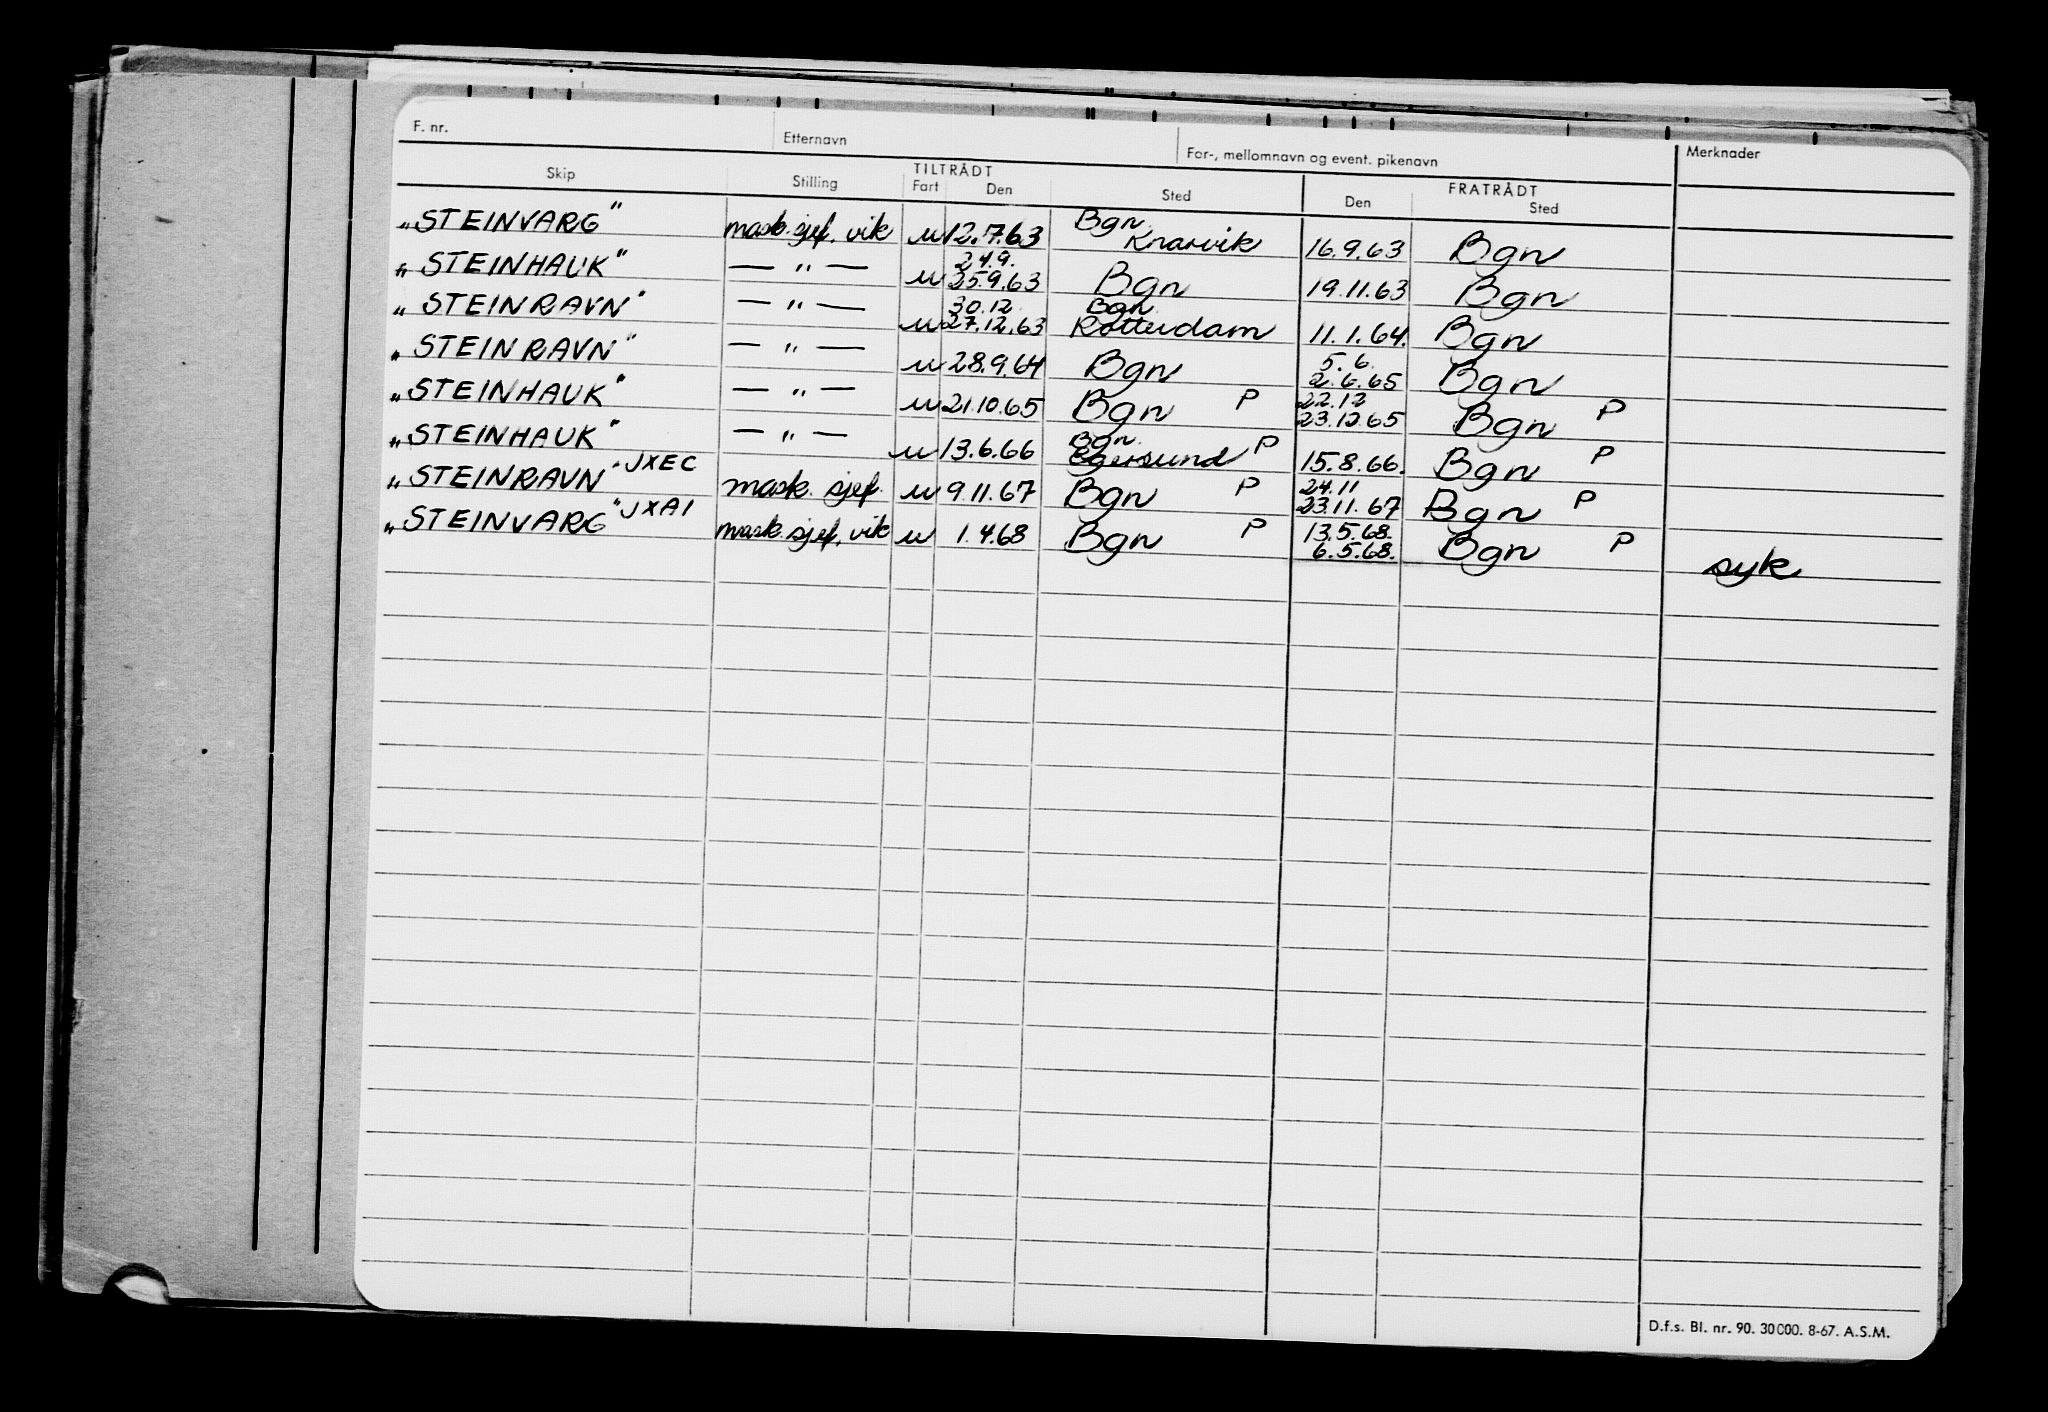 F. nr. Etternavn For-, mellomnavn og event. pikenavn Merknader
Skip Stilling TILTRÅDT Fart Den Sted FRATRÅDT Den Sted
„STEINVARG" mask. sjef, vik u 12.7.63 Bgn Knarvik 16.9.63 Bgn
„STEINHAUK" — „ — u 24.9. 25.9.63 Bgn 19.11.63 Bgn
„STEINRAVN" — „ — u 30.12 27.12.63 Bgn Rotterdam 11.1.64. Bgn
„STEINRAVN" — „ — u 28.9.64 Bgn 5.6. 2.6.65 Bgn
„STEINHAUK" — „ — u 21.10.65 Bgn P 22.12 23.12.65 Bgn P
„STEINHAUK" — „ — u 13.6.66 Bgn Egersund P 15.8.66. Bgn P
„STEINRAVN" JXEC mask. sjef. u 9.11.67 Bgn P 24.11 23.11.67 Bgn P
„STEINVARG" JXAI mask. sjef, vik u 1.4.68 Bgn P 13.5.68. 6.5.68. Bgn P syk
D.f.s. Bl. nr. 90. 30000. 8-67. A.S.M.